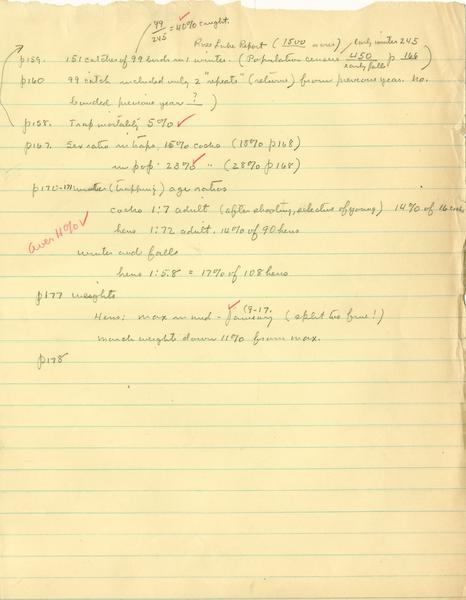 99/245 = 40% caught.
Ross Lake Report (1500 acres) early winter 245
p159. 151 catches of 99 birds in 1 winter. (Population census 450 early fall p 166
p160 99 catch included only 2 "repeats" (returns) from previous year. No.
banded previous year ?)
p158. Trap mortality 5%
p167. Sex ratio in traps, 15% cocks (15% p168)
in pop. 23% " (28% p168)
p170-171 winter (trapping) age ratios
cocks 1:7 adult (after shooting, selective of young) 14% of 16 cocks
hens 1:72 adult. 14% of 90 hens
Over 11%
winter and falls
hens 1:5.8 = 17% of 108 hens
p177 weights
Hens: max in mid-January (9-17. (split too fine!)
March weights down 11% from max.
p178